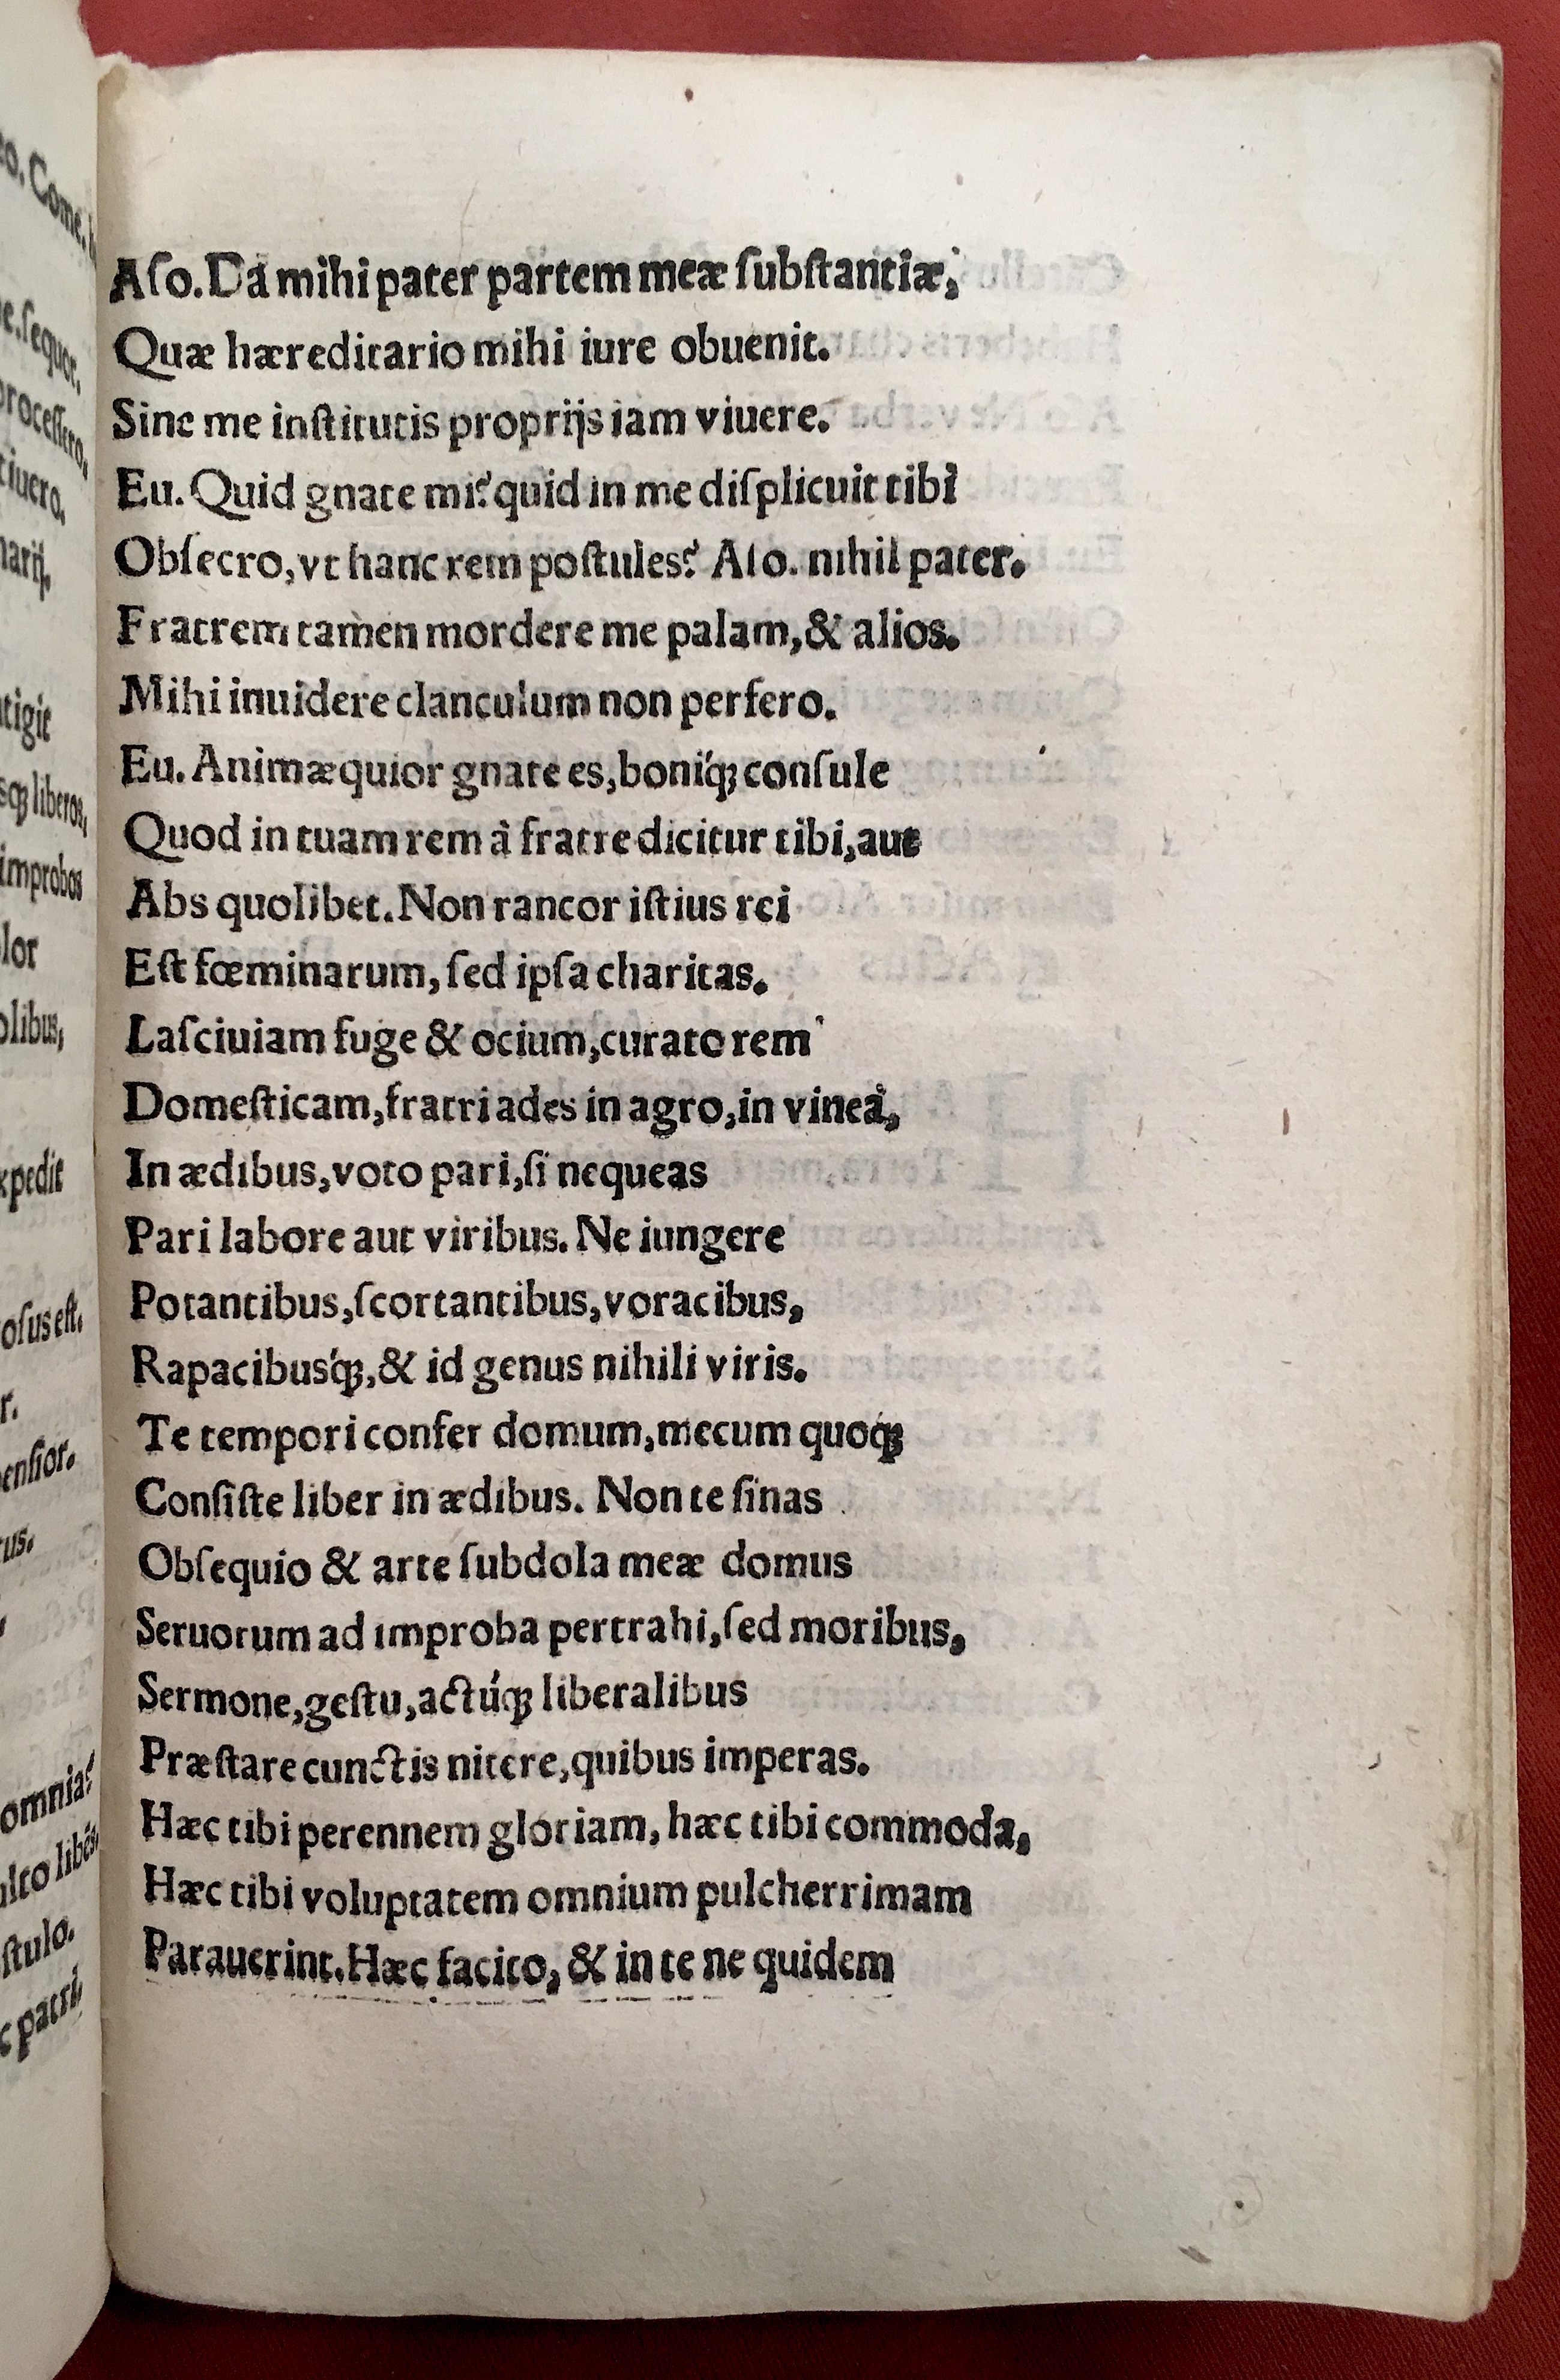 Aſo. Da mihi pater partem meæ ſubſtantiæ,
Quæ hæreditario mihi iure obuenit.
Sine me inſtitutis proprijs iam viuere.
Eu. Quid gnate mi? quid in me diſplicuit tibi
Obſecro, vt hanc rem poſtules? Aſo. nihil pater.
Fratrem tamen mordere me palam, & alios.
Mihi inuidere clanculum non perfero.
Eu. Animæquior gnate es, boniq́ꝫ conſule
Quod in tuam rem à fratre dicitur tibi, aut
Abs quolibet. Non rancor iſtius rei
Eſt fœminarum, ſed ipſa charitas.
Laſciuiam fuge & ocium, curato rem
Domeſticam, fratri ades in agro, in vineâ,
In ædibus, voto pari, ſi nequeas
Pari labore aut viribus. Ne iungere
Potantibus, ſcortantibus, voracibus,
Rapacibusq́ꝫ, & id genus nihili viris.
Te tempori confer domum, mecum quoqꝫ
Conſiſte liber in ædibus. Non te ſinas
Obſequio & arte ſubdola meæ domus
Seruorum ad improba pertrahi, ſed moribus,
Sermone, geſtu, actúqꝫ liberalibus
Præſtare cunctis nitere, quibus imperas.
Hæc tibi perennem gloriam, hæc tibi commoda,
Hæc tibi voluptatem omnium pulcherrimam
Parauerint. Hæc facito, & in te ne quidem